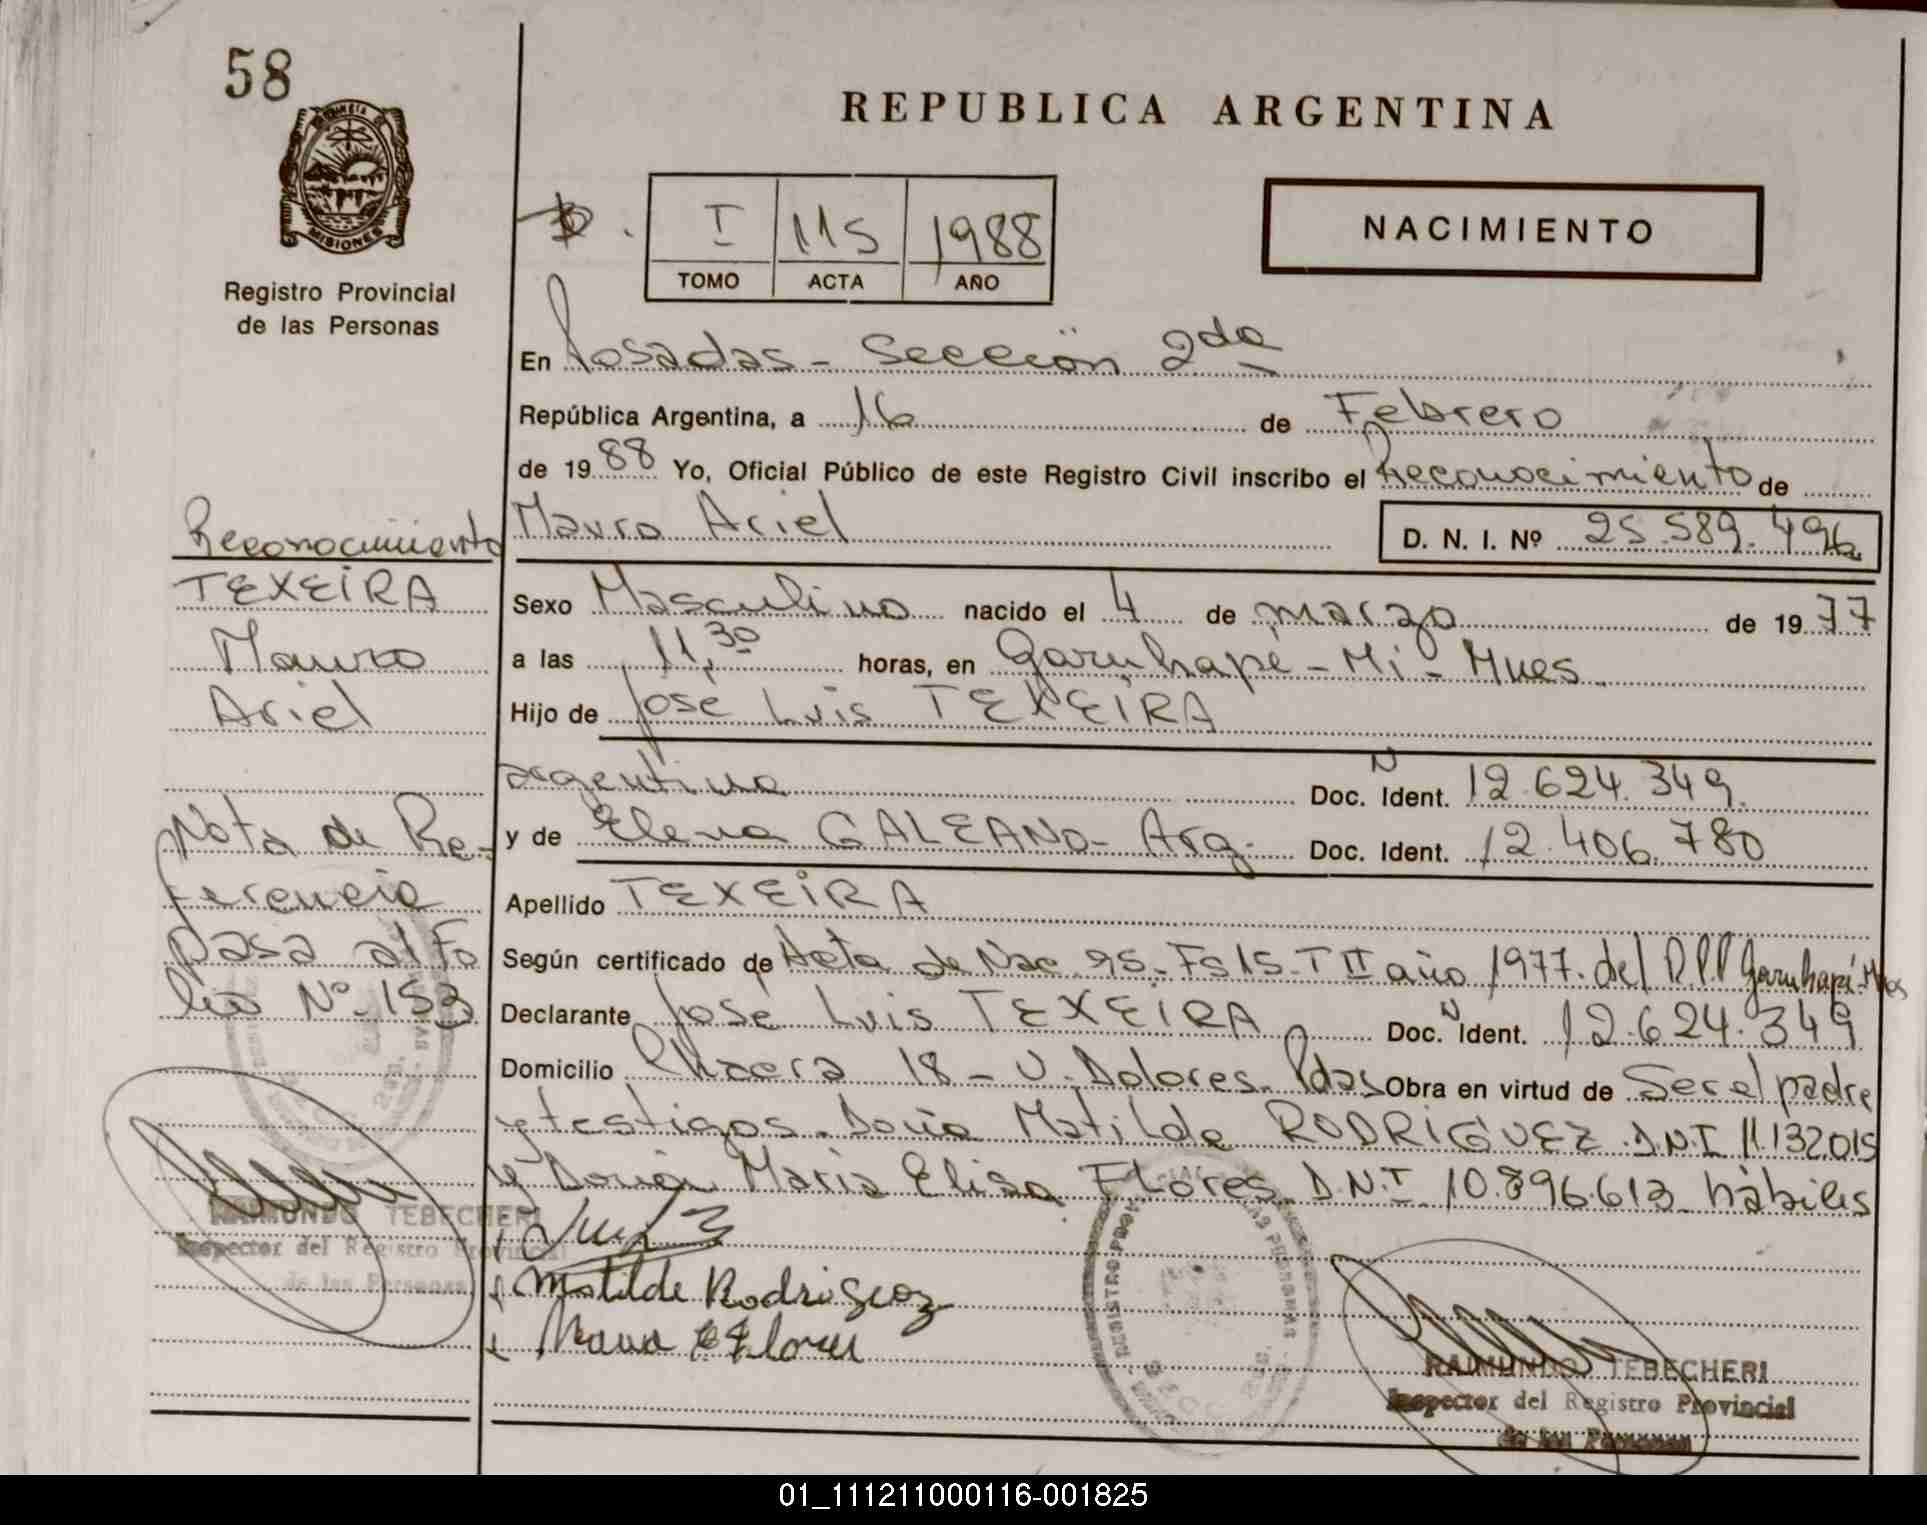 58
PROVINCIA DE
MISIONES
Registro Provincial
de las Personas
REPUBLICA ARGENTINA
I 115 1988
TOMO ACTA AÑO
NACIMIENTO
En Posadas - Sección 2da
República Argentina, a 16 de Febrero
de 1988 Yo, Oficial Público de este Registro Civil inscribo el Reconocimiento de
Mauro Ariel D. N. I. Nº 25.589.496
Sexo Masculino nacido el 4 de marzo de 1977
a las 11,30 horas, en Garuhapé - Mi - Mnes
Hijo de José Luis TEXEIRA
argentino Doc. Ident. N 12.624.349.
y de Elena GALEANO - Arg. Doc. Ident. 12.406.780
Apellido TEXEIRA
Según certificado de Acta de Nac 95 - Fs 15 - T II año 1977. del R.P.P Garuhapé - Mnes
Declarante José Luis TEXEIRA Doc. N Ident. 12.624.349
Domicilio Chacra 18 - V. Dolores - Pdas Obra en virtud de Ser el padre
y testigos. Doña Matilde RODRIGUEZ D.N.I 11.132015
y Doña Maria Elisa Flores D.N.I 10.896.613 hábiles
Matilde Rodriguez
Maria E Flores
RAIMUNDO TEBECHERI
Inspector del Registro Provincial
de las Personas
Reconocimiento
TEXEIRA
Mauro
Ariel
Nota de Re-
ferencia
pasa al Fo
lio Nº 153
RAIMUNDO TEBECHERI
Inspector del Registro Provincial
de las Personas
01_111211000116-001825